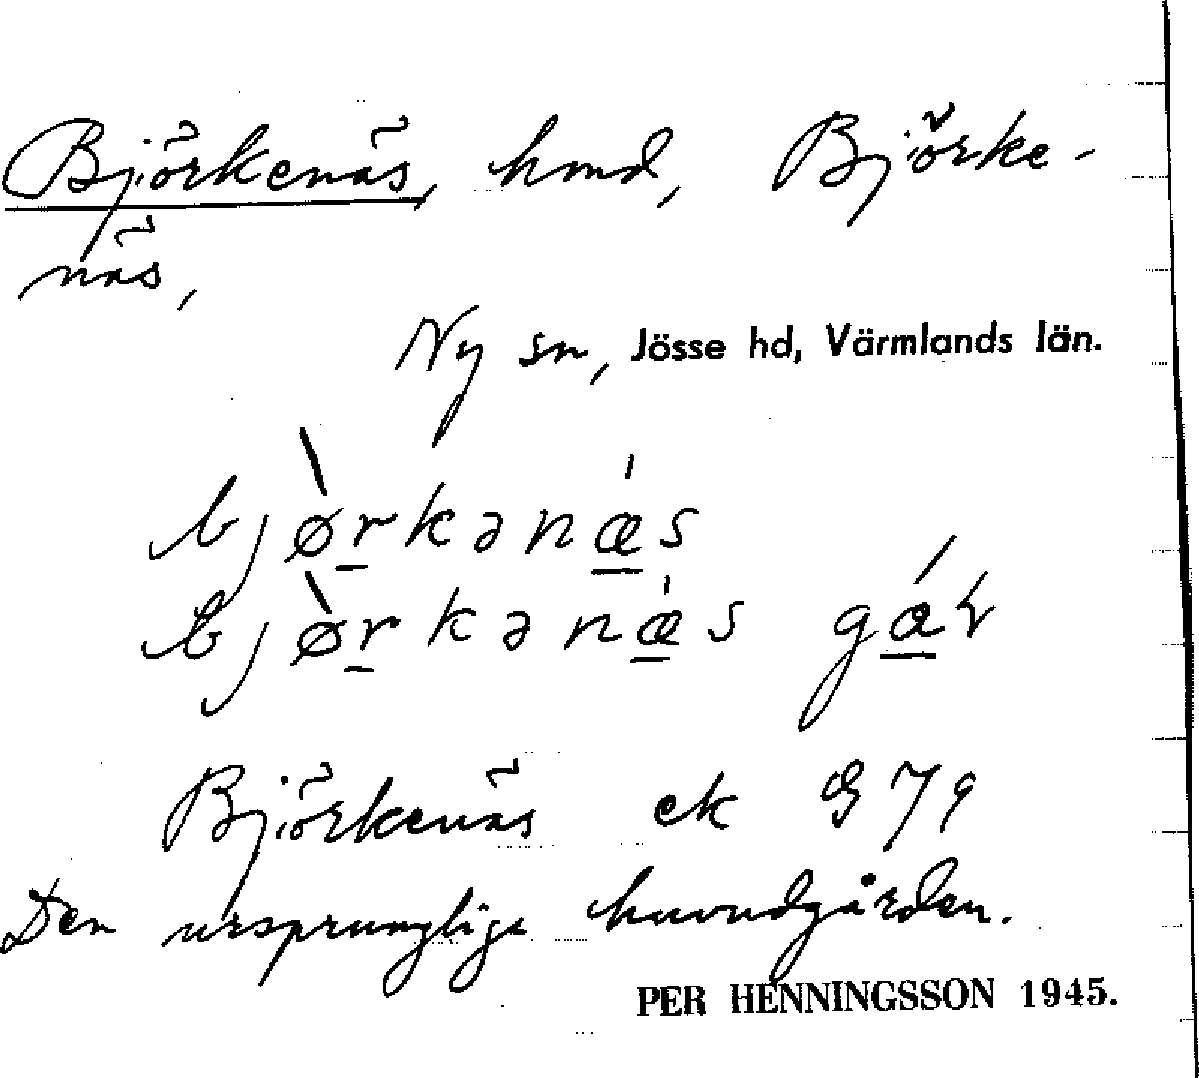 Björkenäs, hmd, Björke-
näs,
Ny sn, Jösse hd, Värmlands län.
bjø̀rkənæ´s
bjø̀rkənæ´s gáɽ
Björkenäs ek G 79
Den ursprungliga huvudgården.
PER HENNINGSSON 1945.